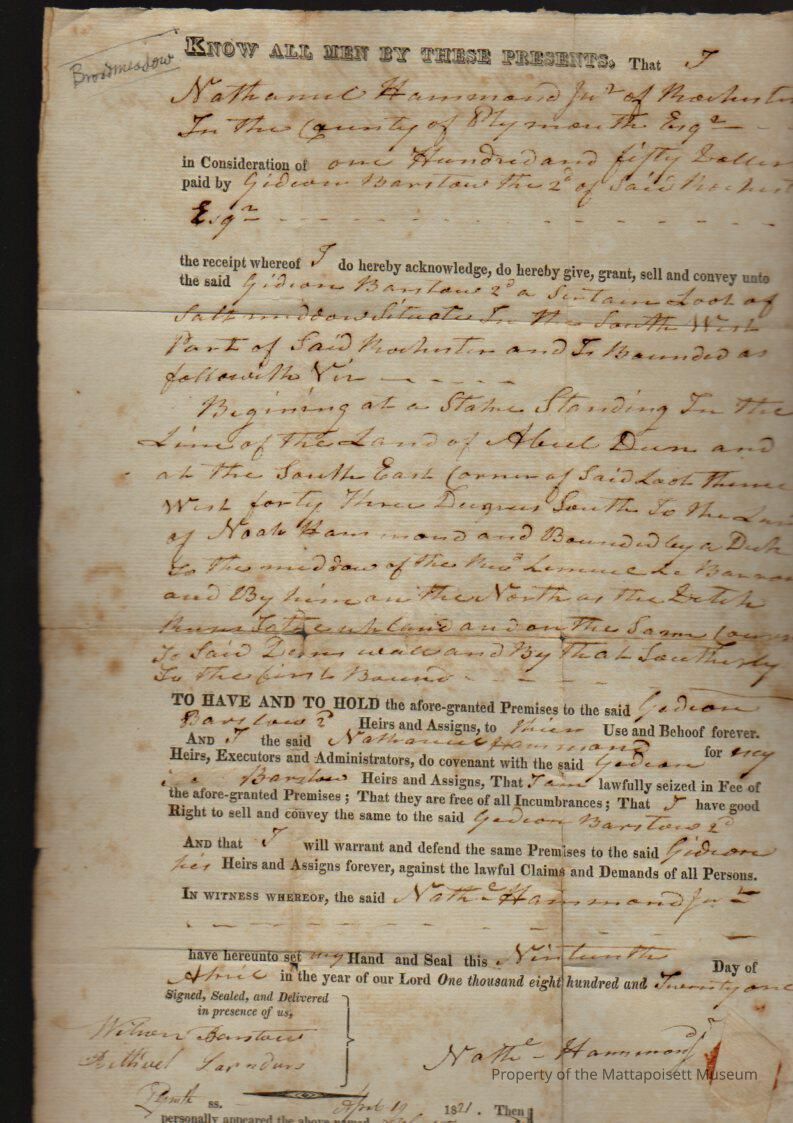 Broadmeadow
KNOW ALL MEN BY THESE PRESENTS, That I
Nathaniel Hammond Junr of Rochester
In the County of Plymouth Esqr
in Consideration of one Hundred and fifty Dollers
paid by Gideon Barstow the 2d of Said Rochest
Esqr
the receipt whereof I do hereby acknowledge, do hereby give, grant, sell and convey unto
the said Gideon Barstow 2d a Sertain Loot of
Salt middow Situate In the South West
Part of Said Rochester and Is Bounded as
followith Viz
Begining at a Stake Standing In the
Line of the Land of Abiel Dun and
at the South East Corner of Said Loot thence
West forty Three Degrees South To the Land
of Noah Hammond and Bounded by a Dich
to the middow of the Revd Lemuel Le Barron
and By him on the North as the Ditch
Runs To the upland and on the Same Cours
To Said Dens wall and By that Southerly
To the first Bound
TO HAVE AND TO HOLD the afore-granted Premises to the said Gedion
Barstow 2d Heirs and Assigns, to thier Use and Behoof forever.
AND I the said Nathaniel Hammond for my
Heirs, Executors and Administrators, do covenant with the said Gedion
Barstow Heirs and Assigns, That I am lawfully seized in Fee of
the afore-granted Premises; That they are free of all Incumbrances; That I have good
Right to sell and convey the same to the said Gedion Barstow 2d
AND that I will warrant and defend the same Premises to the said Gideon
his Heirs and Assigns forever, against the lawful Claims and Demands of all Persons.
IN WITNESS WHEREOF, the said Nathl Hammond Junr
have hereunto set my Hand and Seal this Nintenth Day of
April in the year of our Lord One thousand eight hundred and Twenty one
Signed, Sealed, and Delivered
in presence of us,
Wilson Barstow
Nathl Hammond J
Saunders
Property of the Mattapoisett Museum
Plymth ss. April 19 1821. Then
personally appeared the above named